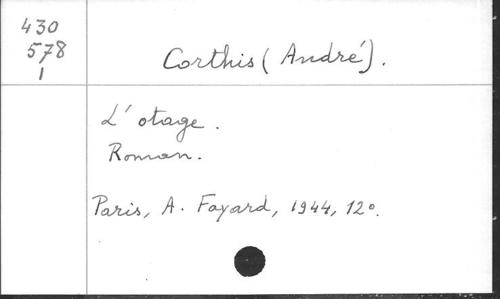 430
578
1
Corthis (André).
L'otage.
Roman.
Paris, A. Fayard, 1944, 12°.